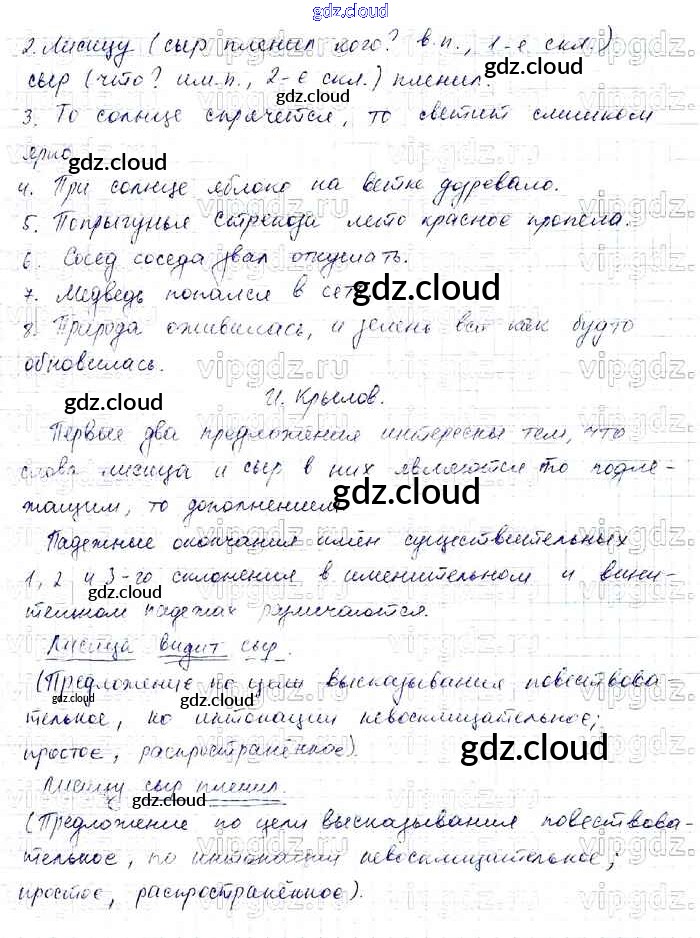 gdz.cloud
2. Лисицу (сыр пленил кого? в.п., 1-е скл.)
сыр (что? им.п., 2-е скл.) пленил.
gdz.cloud
3. То солнце спрячется, то светит слишком
ярко.
gdz.cloud
4. При солнце яблоко на ветке дозревало.
5. Попрыгунья Стрекоза лето красное пропела.
6. Сосед соседа звал откушать.
7. Медведь попался в сеть
gdz.cloud
8. Природа оживилась, и зелень вся как будто
обновилась.
gdz.cloud
И. Крылов.
Первые два предложения интересны тем, что
слова лисица и сыр в них являются то подле-
жащим, то дополнением
gdz.cloud
gdz.cloud
Падежные окончания имён существительных
1, 2 и 3-го склонения в именительном и вини-
тельном падежах различаются.
gdz.cloud
Лисица видит сыр.
(Предложение по цели высказывания повествова
тельное, по интонации невосклицательное;
gdz.cloud
gdz.cloud
простое, распространённое).
gdz.cloud
Лисицу сыр пленил.
gdz.cloud
(Предложение по цели высказывания повествова-
тельное, по интонации невосклицательное;
простое, распространённое).